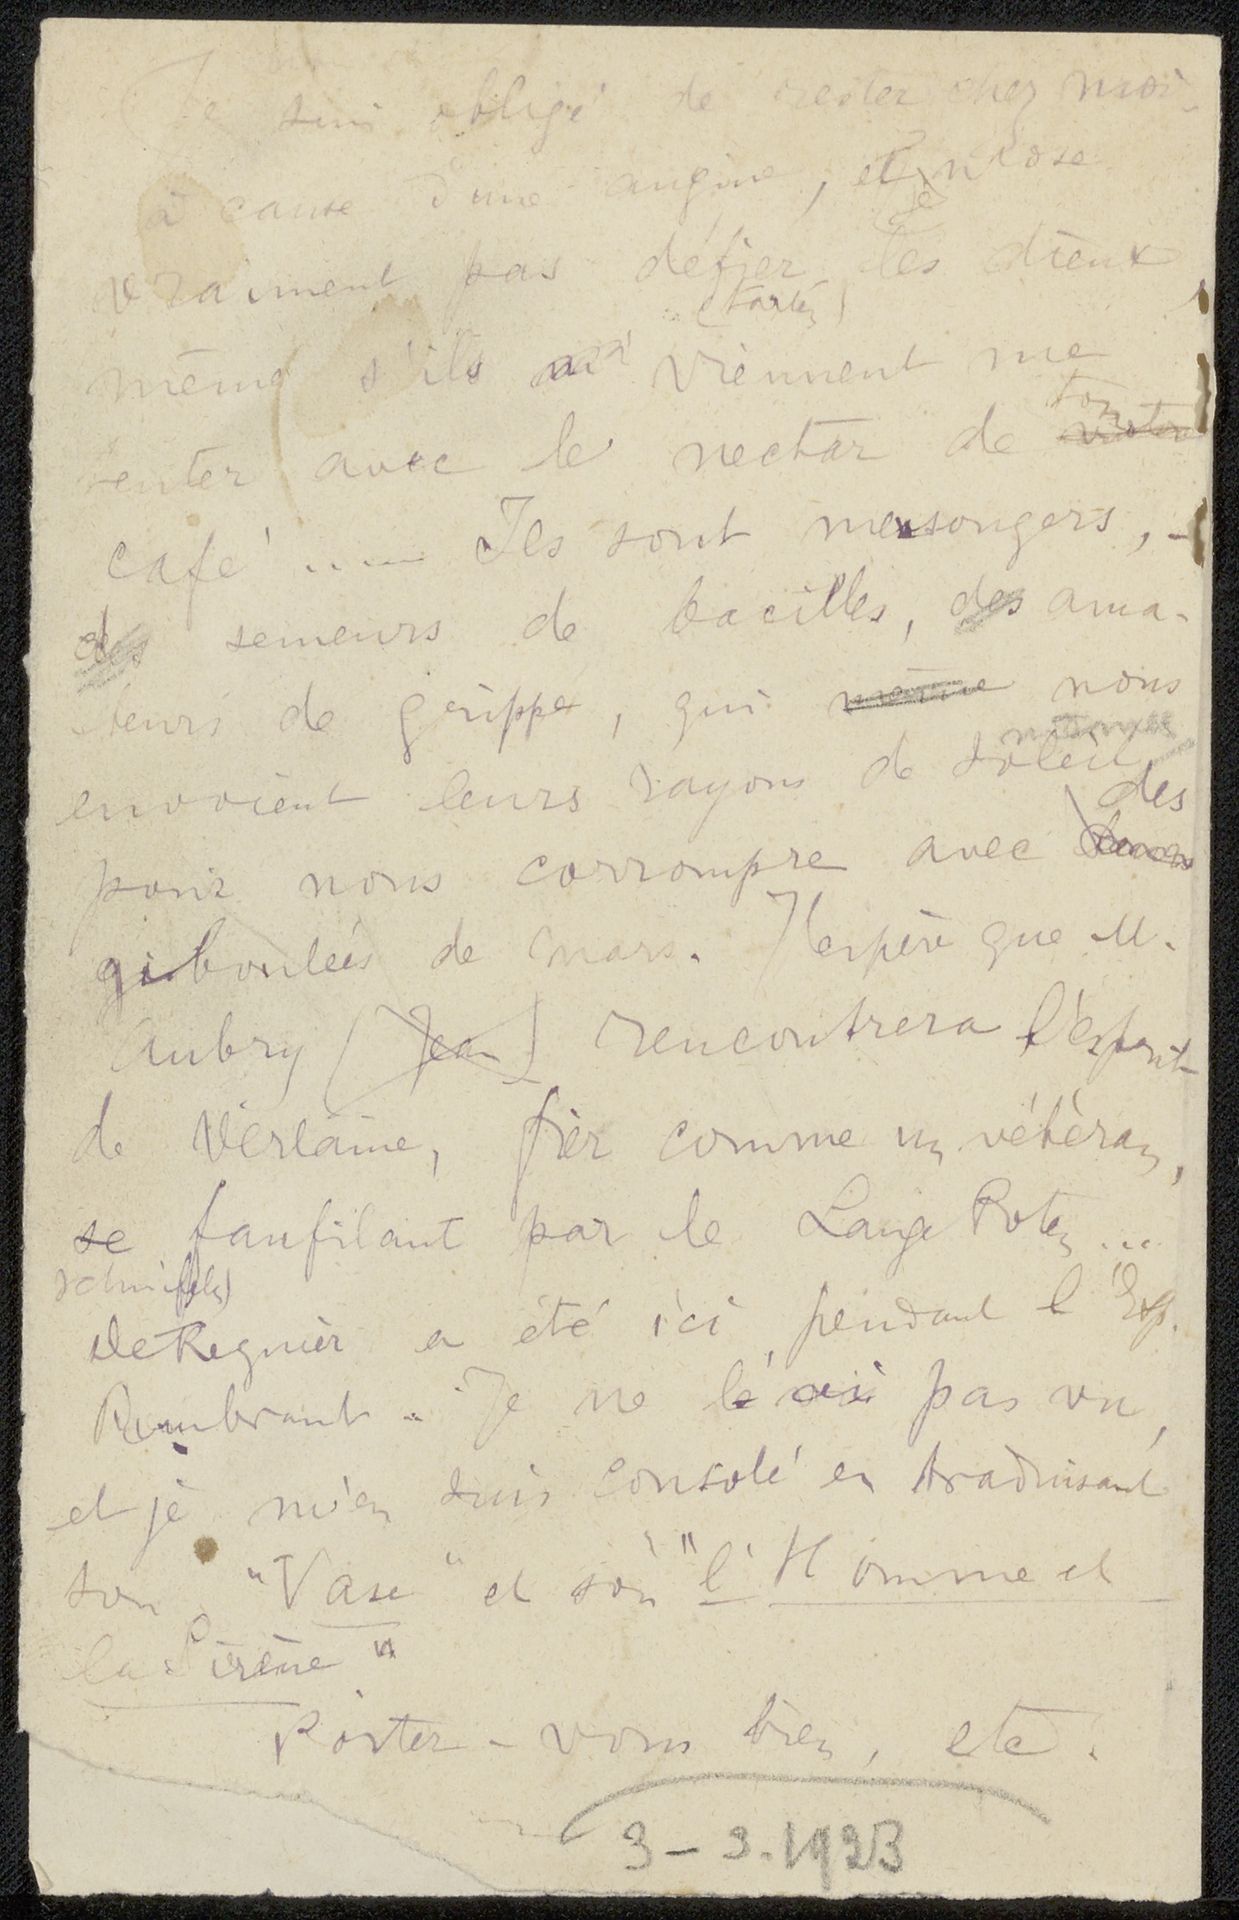 Je suis obligé de rester chez moi
à cause d'une angine, et je n'ose
vraiment pas défier les dieux
même s'ils viennent me
tenter avec le nectar de ton
café ..... Ils sont mensongers, -
des semeurs de bacilles, des ama-
teurs de grippe, qui même nous
envoient leurs rayons de soleil
des
pour nous corrompre avec
giboulées de mars. J'espère que M.
Aubry (Jean) rencontrera l'esprit
de Verlaine, fier comme un vétéran,
se faufilant par le Lange Poten...
De Regnier a été ici pendant l'Exp.
Rembrant. Je ne l'ai pas vu,
et je m'en suis consolé en traduisant
son "Vase" et son "l'Homme et
la Sirène"
Portez-vous bien, etc.
3-3.1923